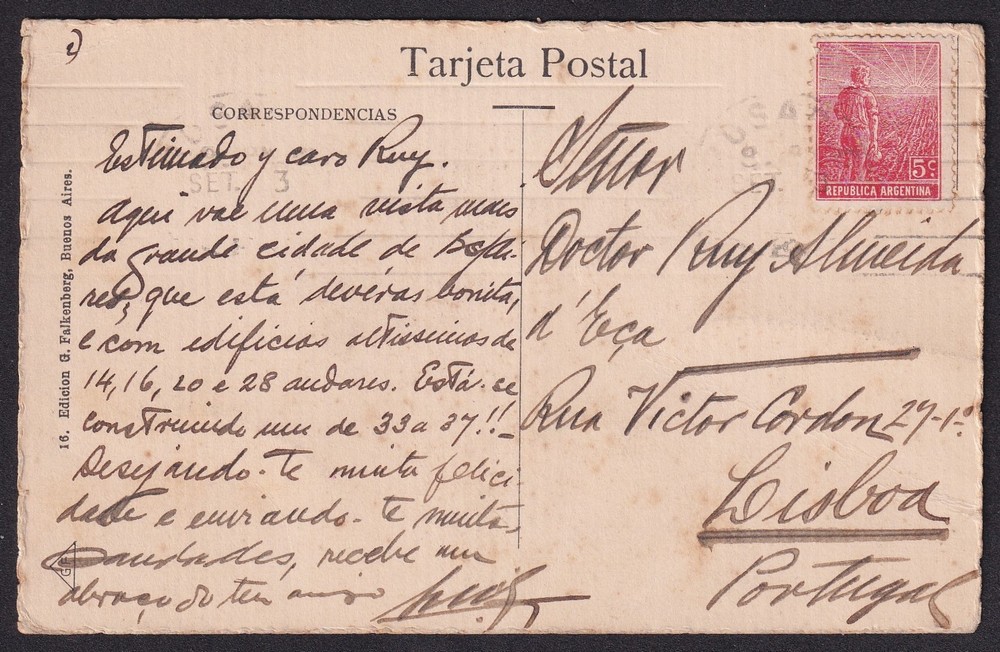 2)
Tarjeta Postal
CORRESPONDENCIAS
Estimado y caro Ruy.
SET. 3
Aqui vae uma vista mais
da grande cidade de B. Ai-
res, que está devéras bonita,
e com edificios altissimos de
14, 16, 20 e 28 andares. Está-se
construindo um de 33 a 37!!-
Desejando-te muita felici-
dade e enviando-te muitas
saudades, recebe um
abraço do teu amigo
16. Edicion G. Falkenberg, Buenos Aires.
5c
REPUBLICA ARGENTINA
Señor
Doctor Ruy Almeida
d'Eça
Rua Victor Cordon 27-1º
Lisboa
Portugal